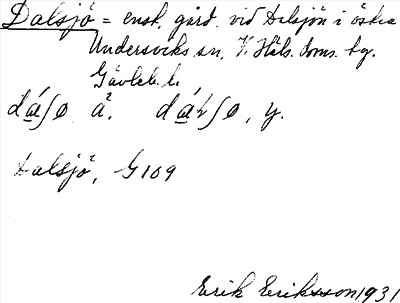 Dalsjö = ensk. gård vid Dalsjön i östra
Undersviks sn, V. Häls. doms. tg.
Gävleb. l.
Dalsjö, G 109
Erik Eriksson 1931